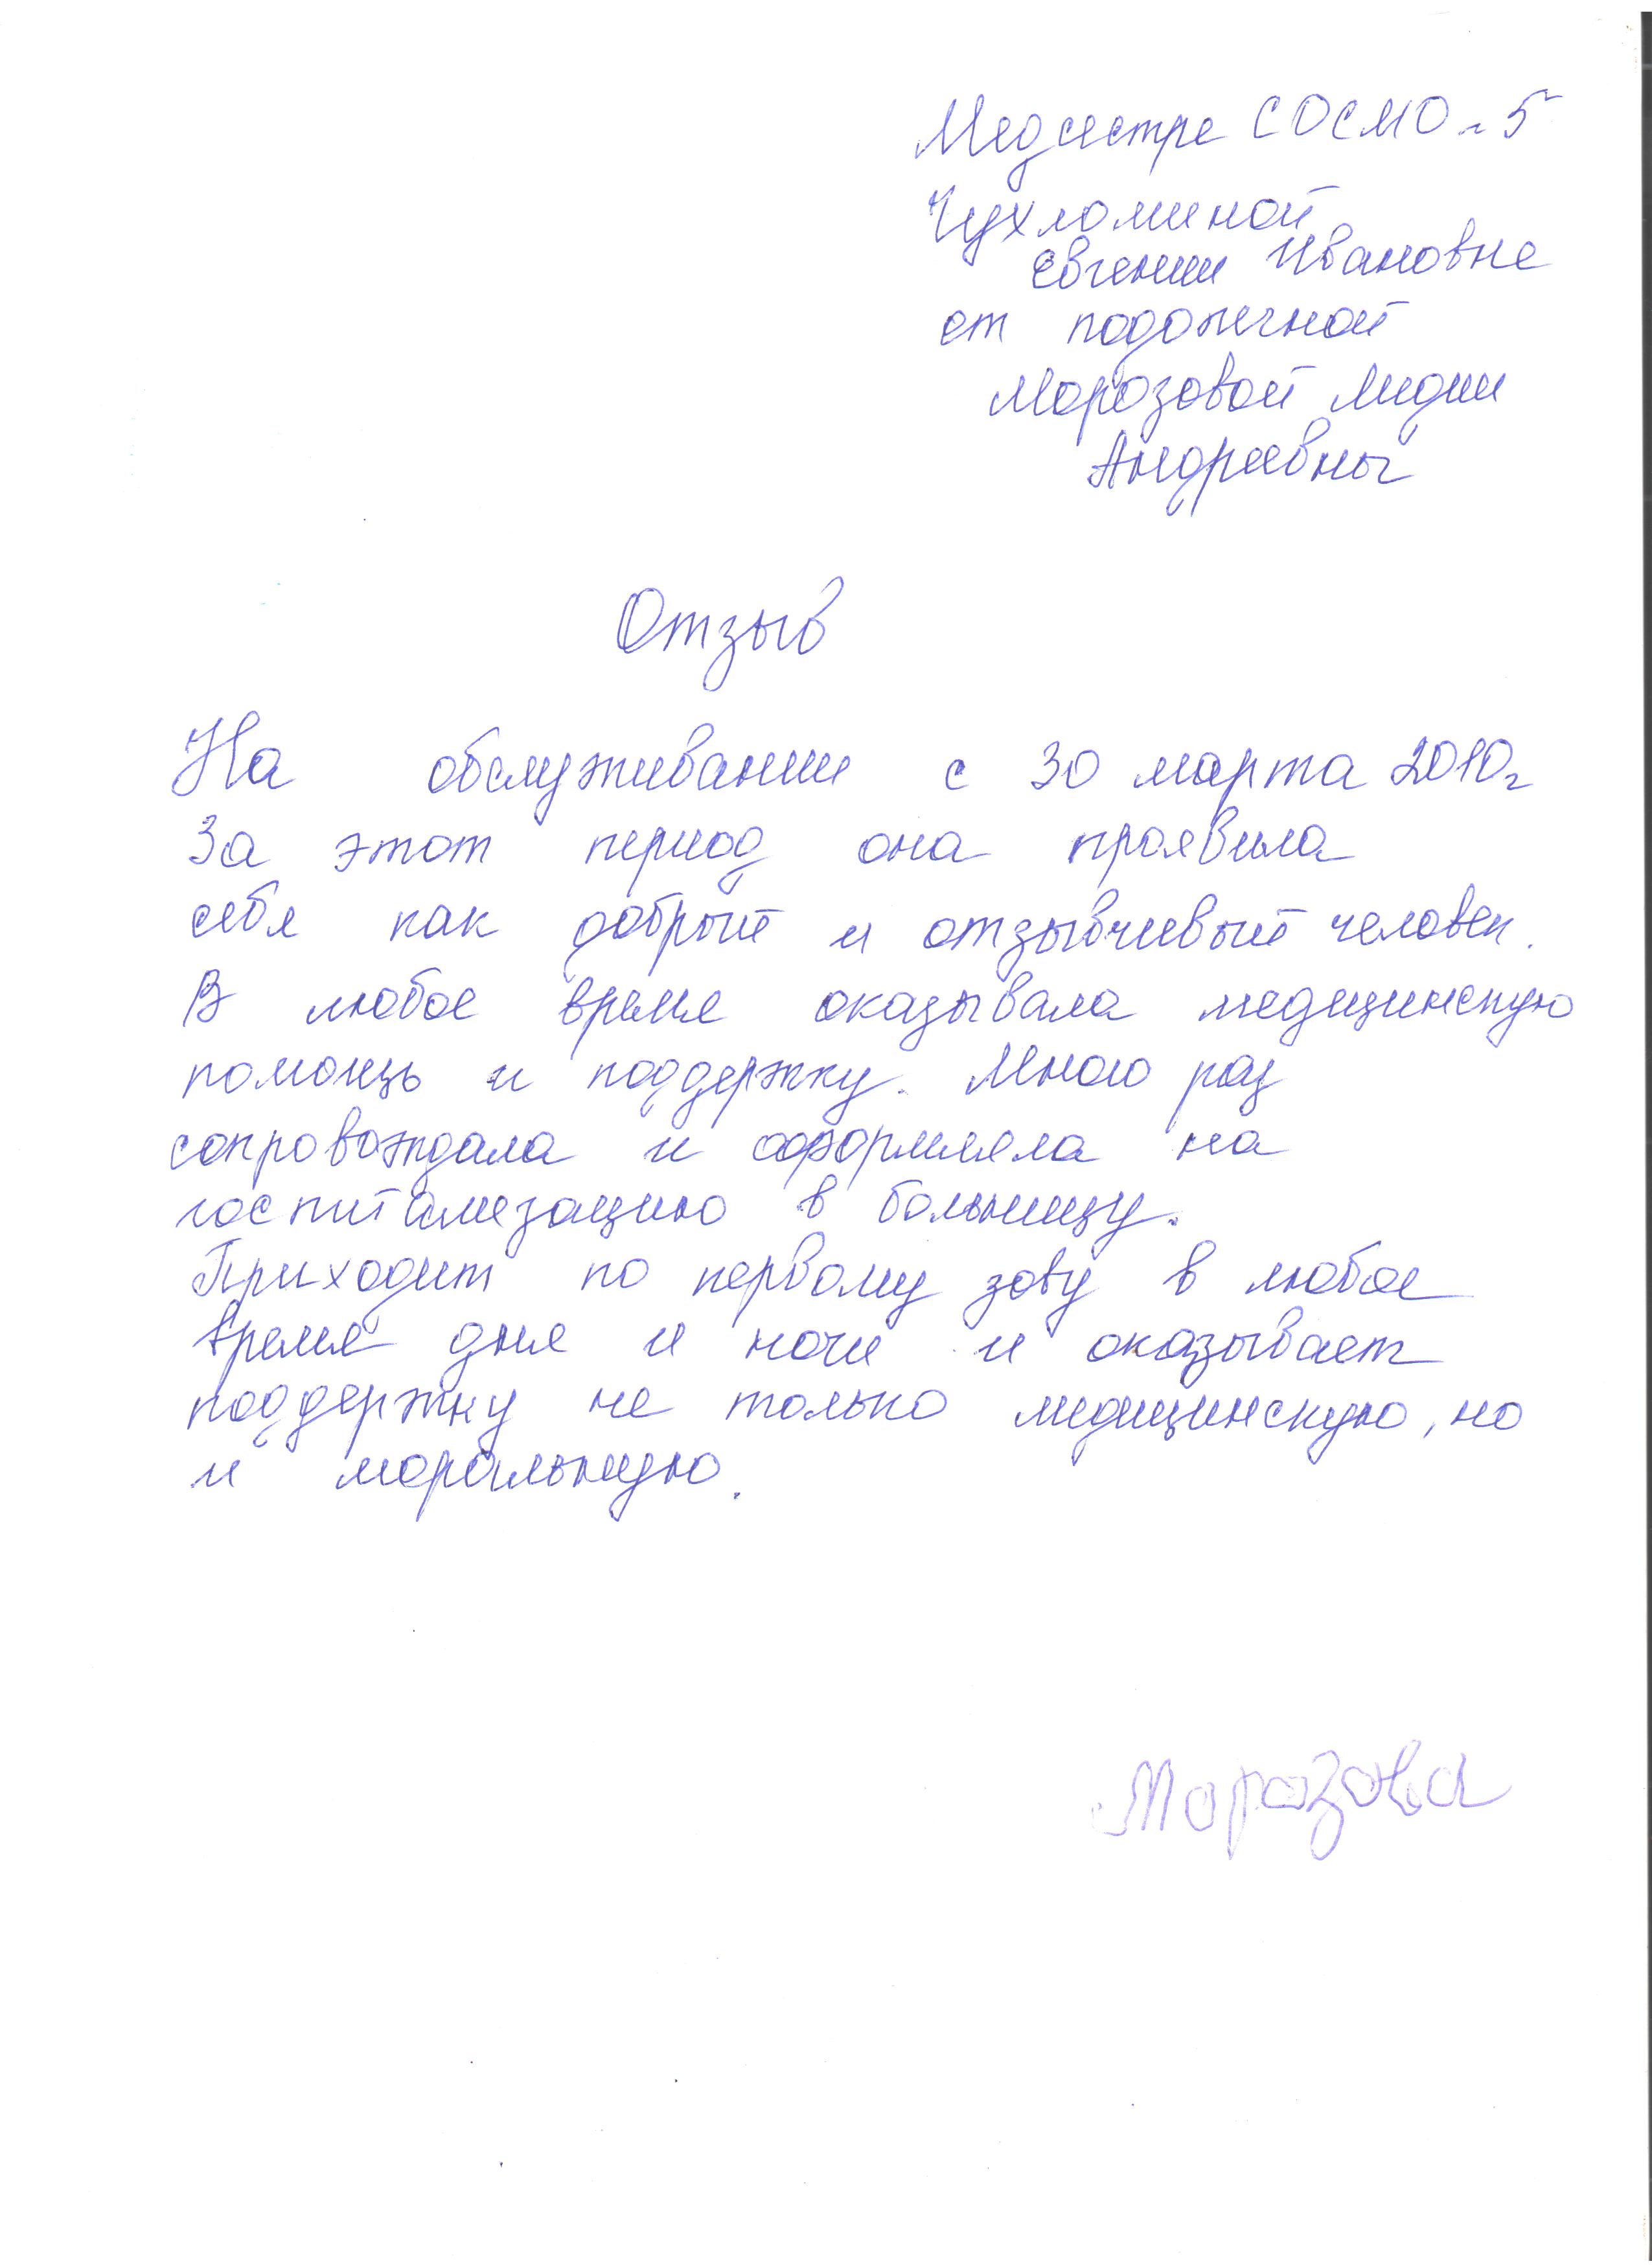 Медсестре СОСМО-5
Чухломиной
Евгении Ивановне
от подопечной
Морозовой Лидии
Андреевны
Отзыв
На обслуживании с 30 марта 2010г
За этот период она проявила
себя как добрый и отзывчивый человек.
В любое время оказывала медицинскую
помощь и поддержку. Много раз
сопровождала и оформляла на
госпитализацию в больницу.
Приходит по первому зову в любое
время дня и ночи и оказывает
поддержку не только медицинскую, но
и моральную.
Морозова